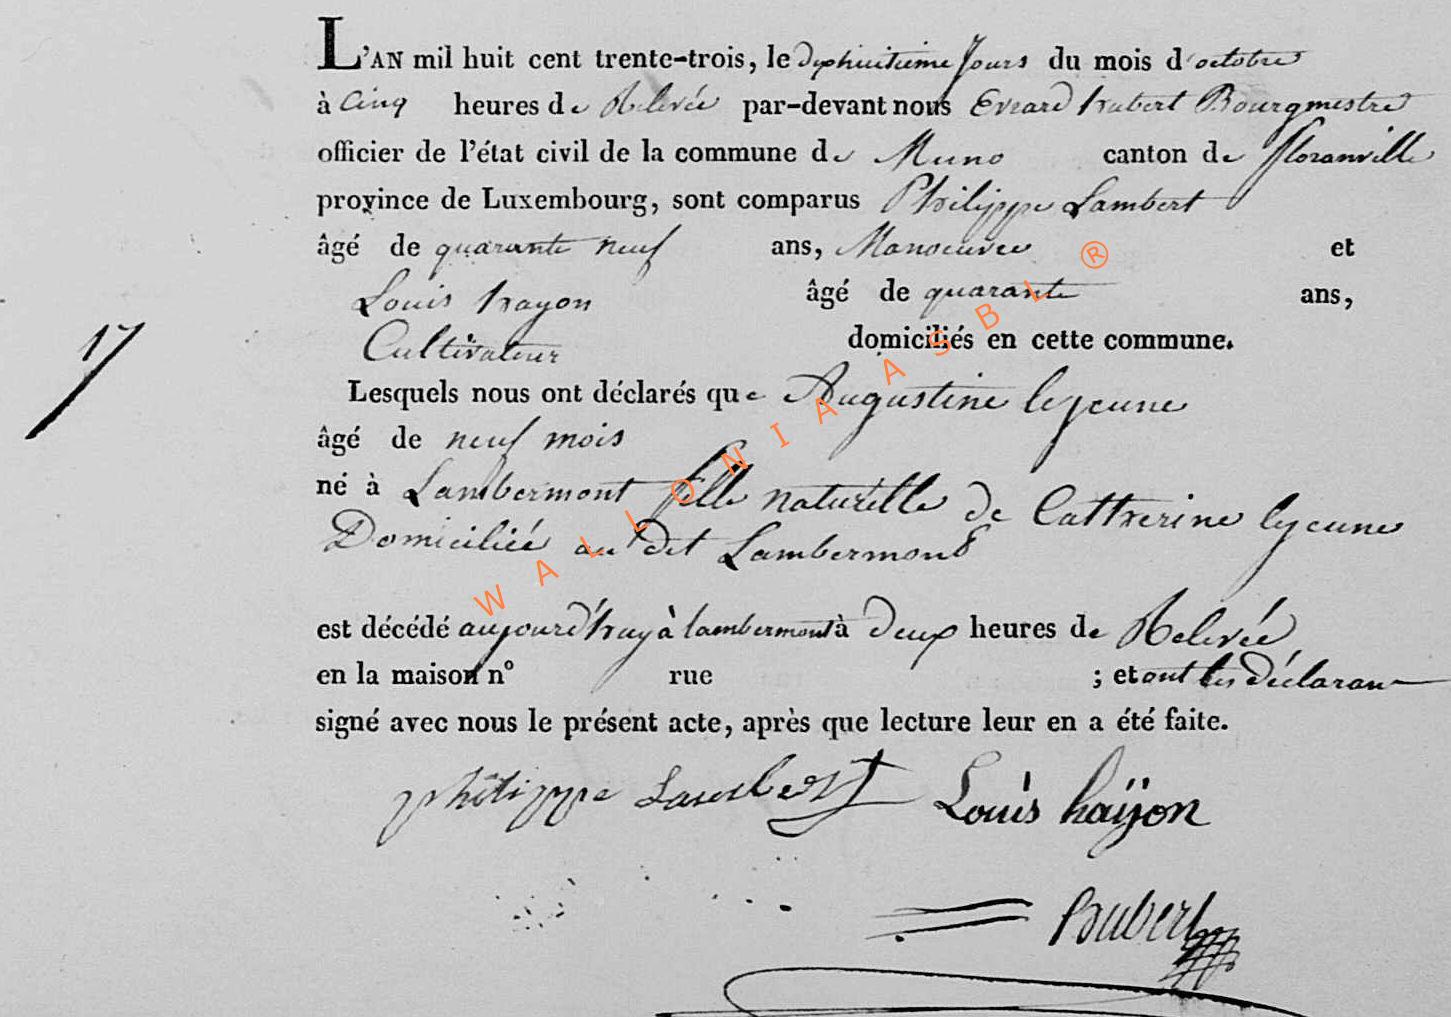 L'AN mil huit cent trente-trois, le dixhuitieme Jours du mois d'octobre
à Cinq heures de Relevée par-devant nous Evrard hubert Bourgmestre
officier de l'état civil de la commune de Muno canton de floranville
province de Luxembourg, sont comparus Philippe Lambert
âgé de quarante neuf ans, Manoeuvre et
Louis hayon âgé de quarante ans,
Cultivateur domiciliés en cette commune.
17
Lesquels nous ont déclarés que Augustine lejeune
âgé de neuf mois
né à Lambermont fille naturelle de Catherine lejeune
Domiciliée au dit Lambermont
est décédé aujourd'huy à lambermont à deux heures de Relevée
en la maison n° rue ; et ont les déclarant
signé avec nous le présent acte, après que lecture leur en a été faite.
philippe Lambert Louis haÿon
hubert
WALLONIA ASBL ®